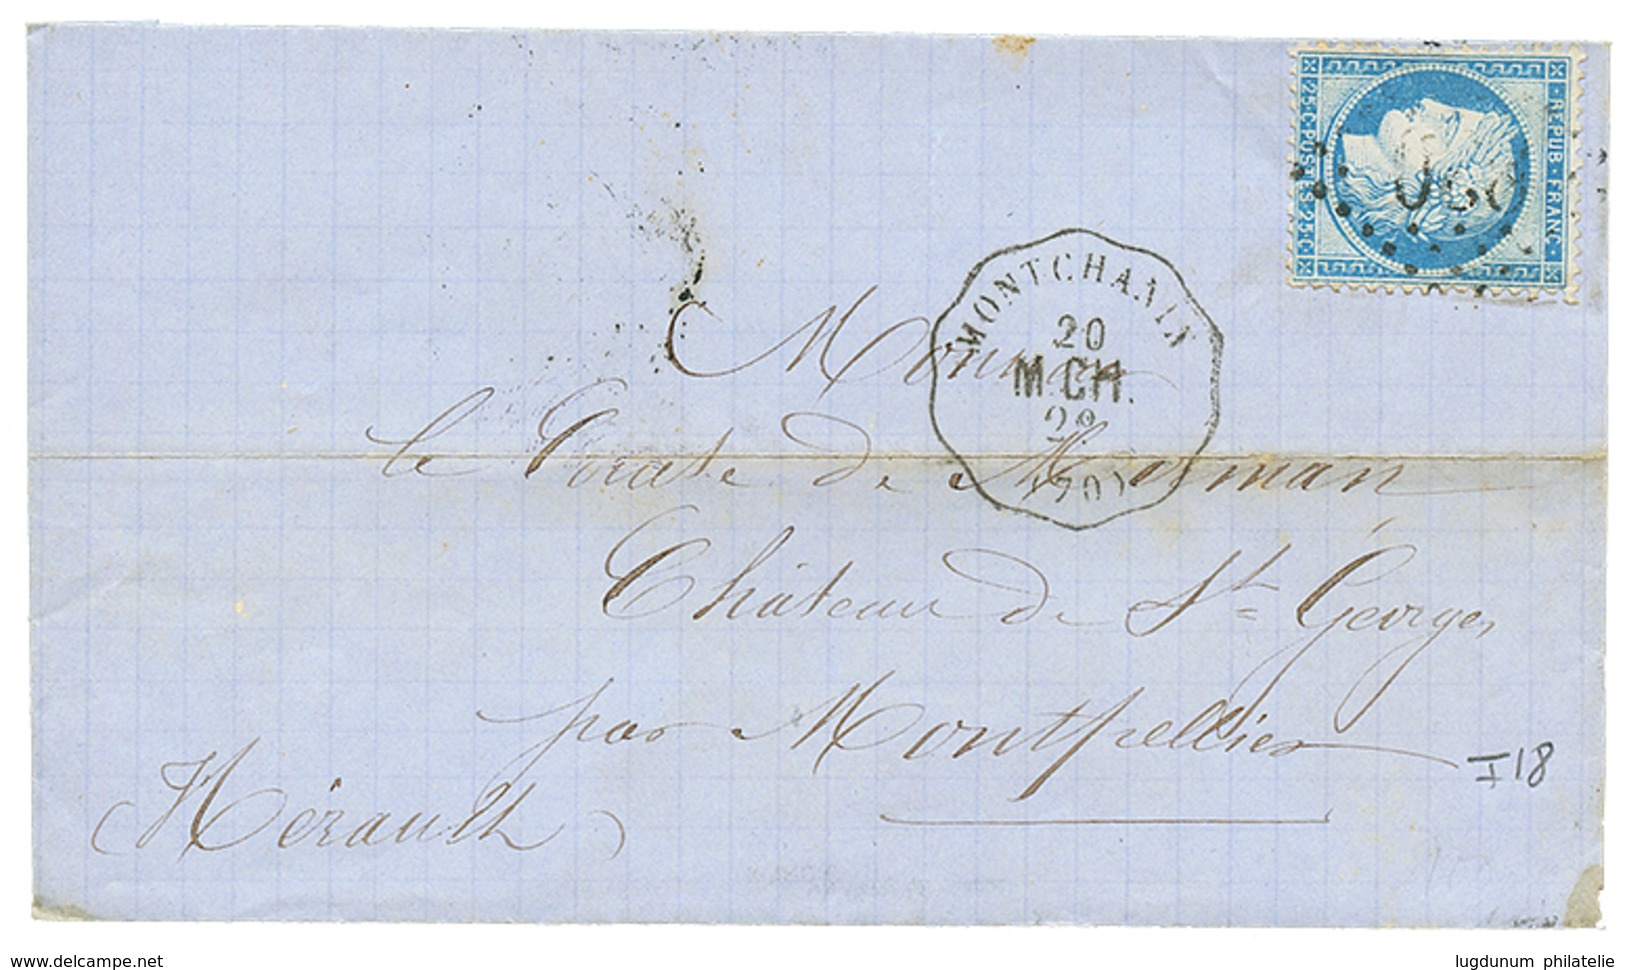 REPUB·FRANC·
25·C·POSTES 25·C·
MONTCHANIN
20
M.CH.
(70)
Monsieur
le Comte de Murman
Château de St Georges
par Montpellier
(Hérault)
I 18
delcampe.net
lugdunum philatelie